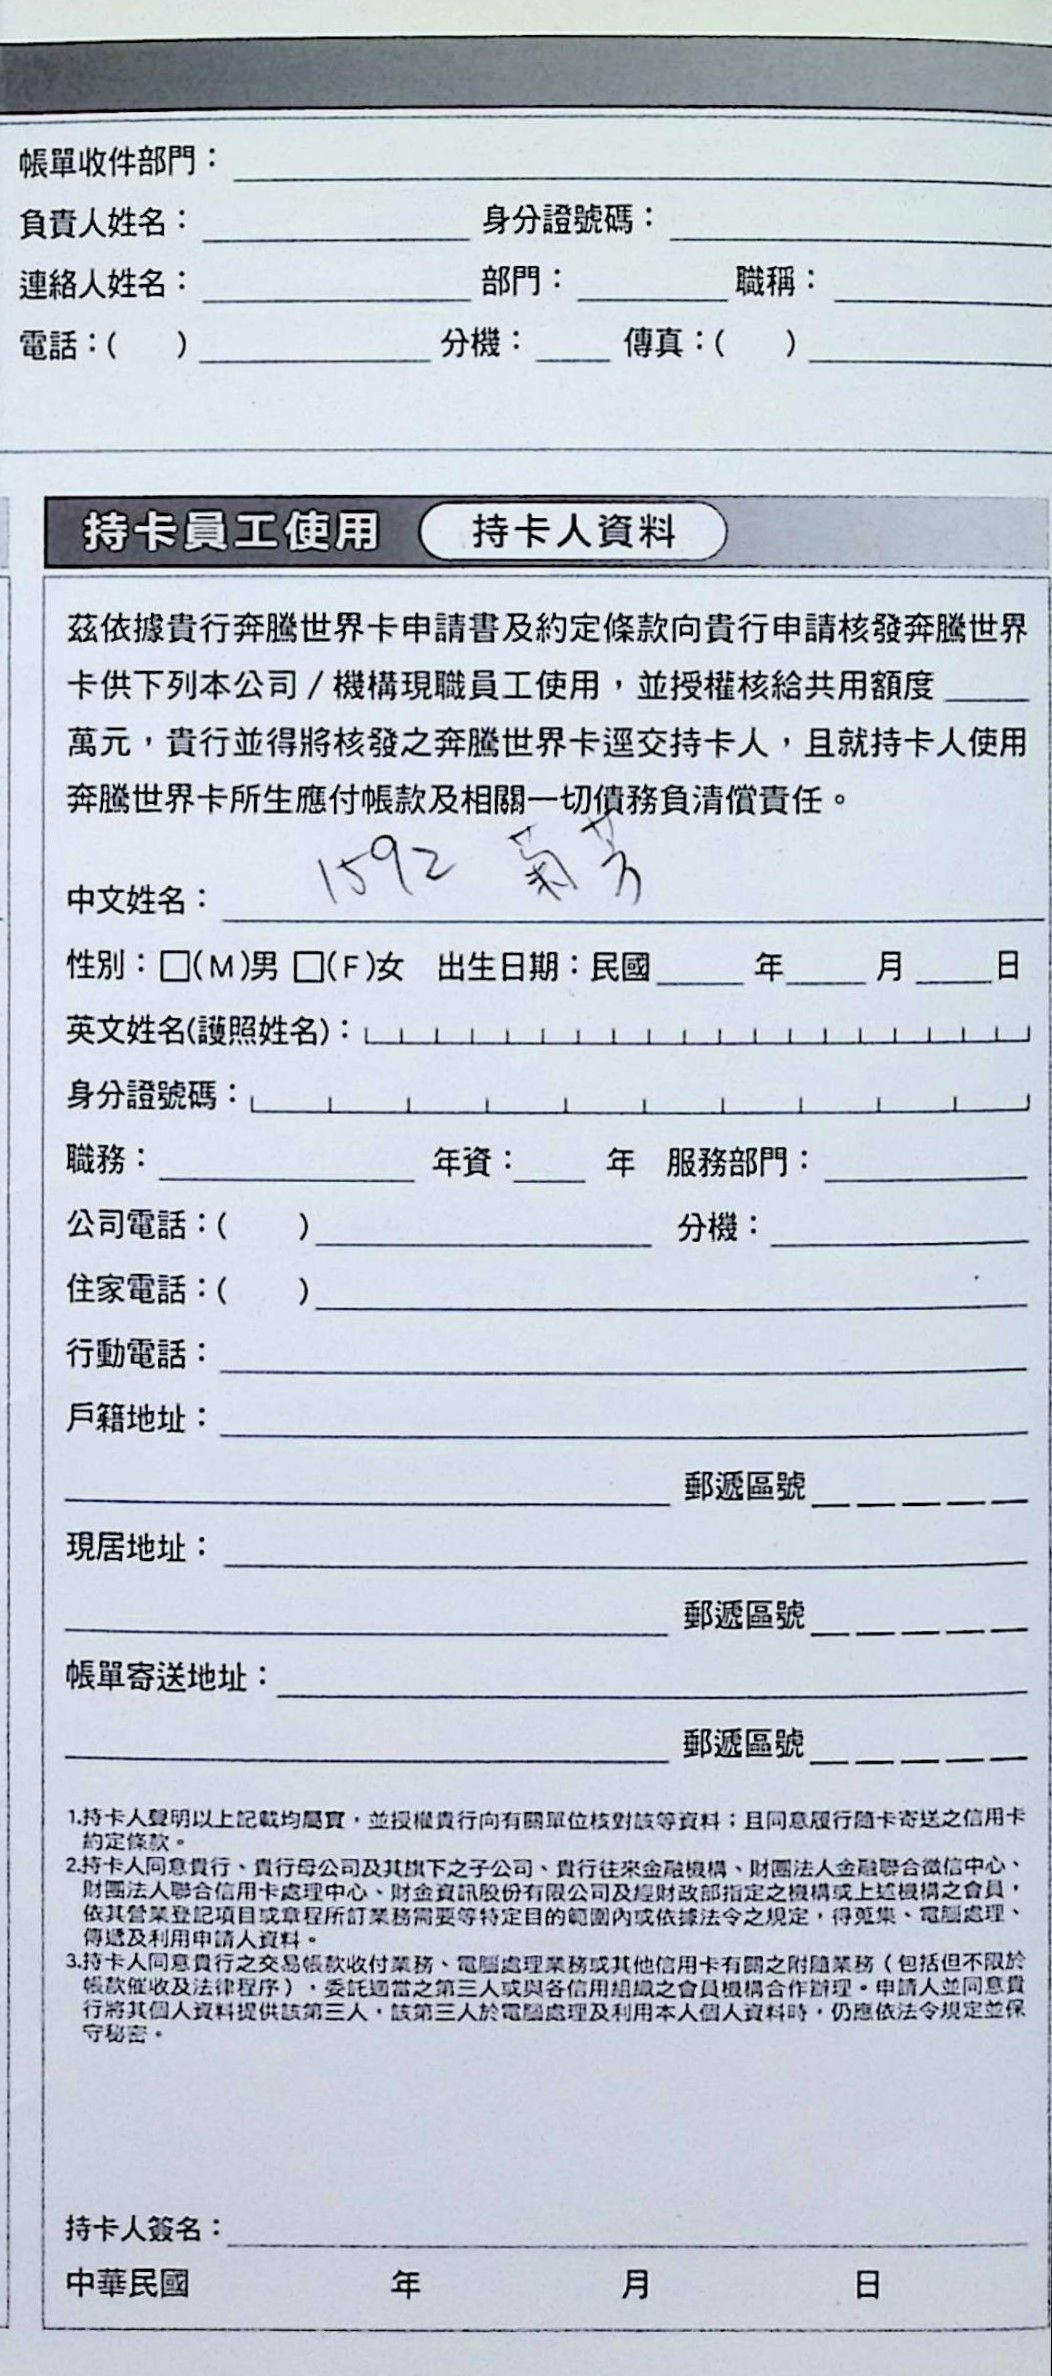 帳單收件部門：
負責人姓名： 身分證號碼：
連絡人姓名： 部門： 職稱：
電話：( ) 分機： 傳真：( )
持卡員工使用 持卡人資料
茲依據貴行奔騰世界卡申請書及約定條款向貴行申請核發奔騰世界
卡供下列本公司/機構現職員工使用，並授權核給共用額度
萬元，貴行並得將核發之奔騰世界卡逕交持卡人，且就持卡人使用
奔騰世界卡所生應付帳款及相關一切債務負清償責任。
中文姓名： 1592 菊芳
性別：□(M)男 □(F)女 出生日期：民國 年 月 日
英文姓名(護照姓名)：
身分證號碼：
職務： 年資： 年 服務部門：
公司電話：( ) 分機：
住家電話：( )
行動電話：
戶籍地址：
郵遞區號
現居地址：
郵遞區號
帳單寄送地址：
郵遞區號
1.持卡人聲明以上記載均屬實，並授權貴行向有關單位核對該等資料；且同意履行隨卡寄送之信用卡
約定條款。
2.持卡人同意貴行、貴行母公司及其旗下之子公司、貴行往來金融機構、財團法人金融聯合徵信中心、
財團法人聯合信用卡處理中心、財金資訊股份有限公司及經財政部指定之機構或上述機構之會員，
依其營業登記項目或章程所訂業務需要等特定目的範圍內或依據法令之規定，得蒐集、電腦處理、
傳遞及利用申請人資料。
3.持卡人同意貴行之交易帳款收付業務、電腦處理業務或其他信用卡有關之附隨業務（包括但不限於
帳款催收及法律程序），委託適當之第三人或與各信用組織之會員機構合作辦理。申請人並同意貴
行將其個人資料提供該第三人，該第三人於電腦處理及利用本人個人資料時，仍應依法令規定並保
守秘密。
持卡人簽名：
中華民國 年 月 日